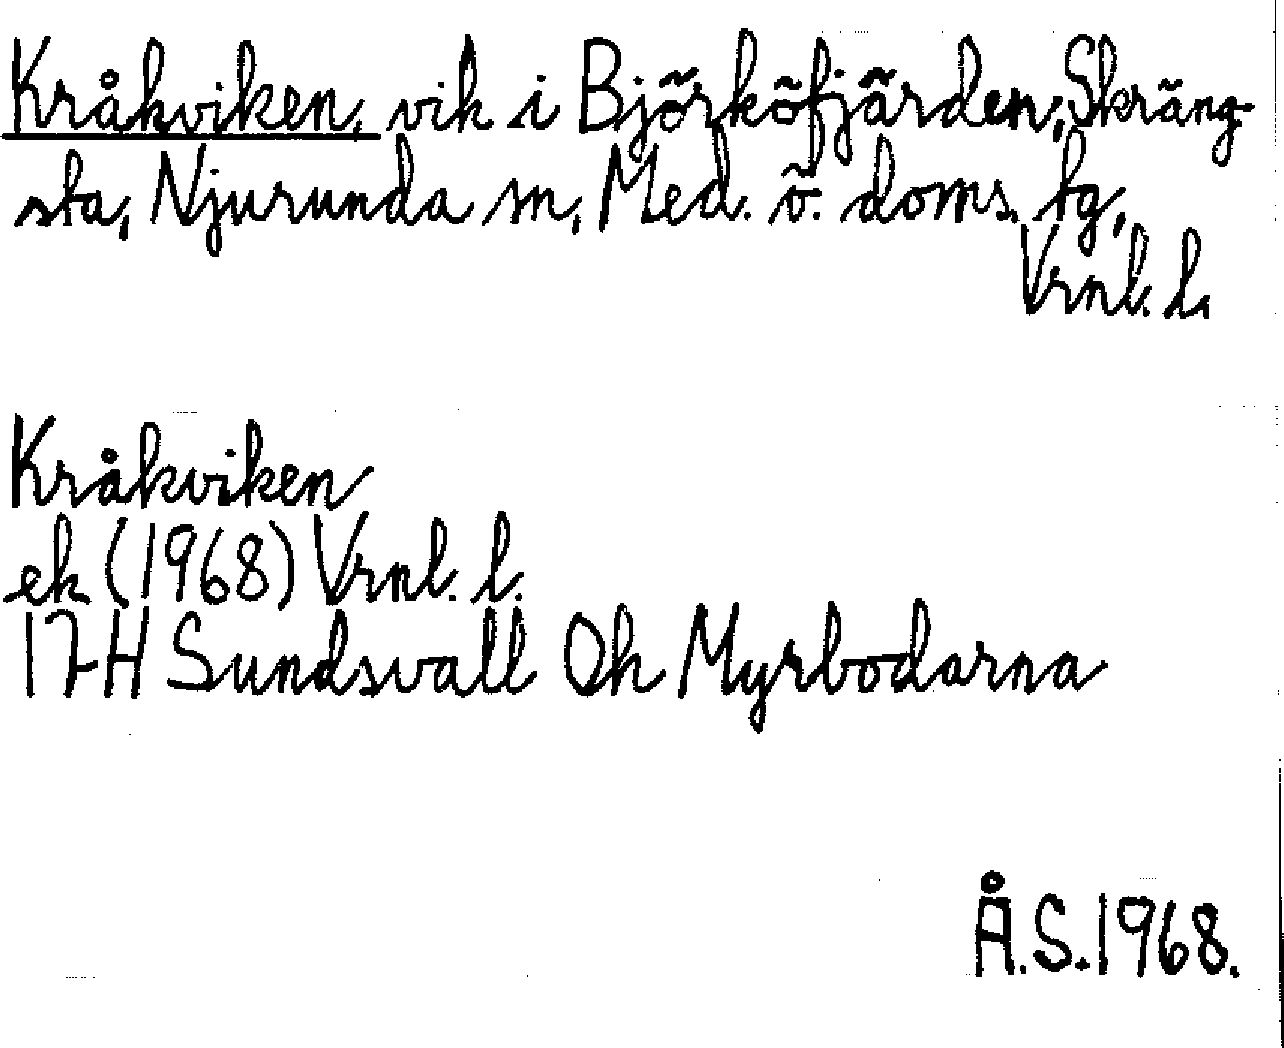 Kråkviken, vik i Björköfjärden, Skräng-
sta, Njurunda sn, Med. ö. doms. tg,
Vrnl. l.
Kråkviken
ek (1968) Vrnl. l.
17H Sundsvall 0h Myrbodarna
Å.S. 1968.